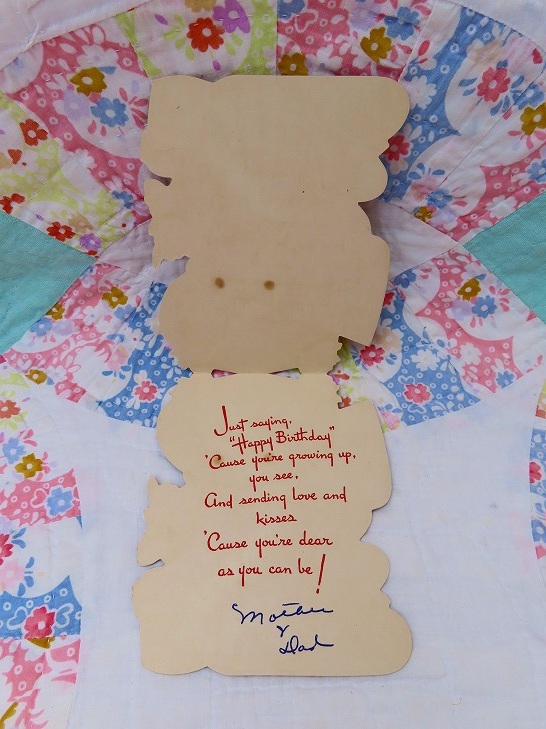 Just saying,
"Happy Birthday"
'Cause you're growing up,
you see,
And sending love and
kisses
'Cause you're dear
as you can be!
Mother
&
Dad